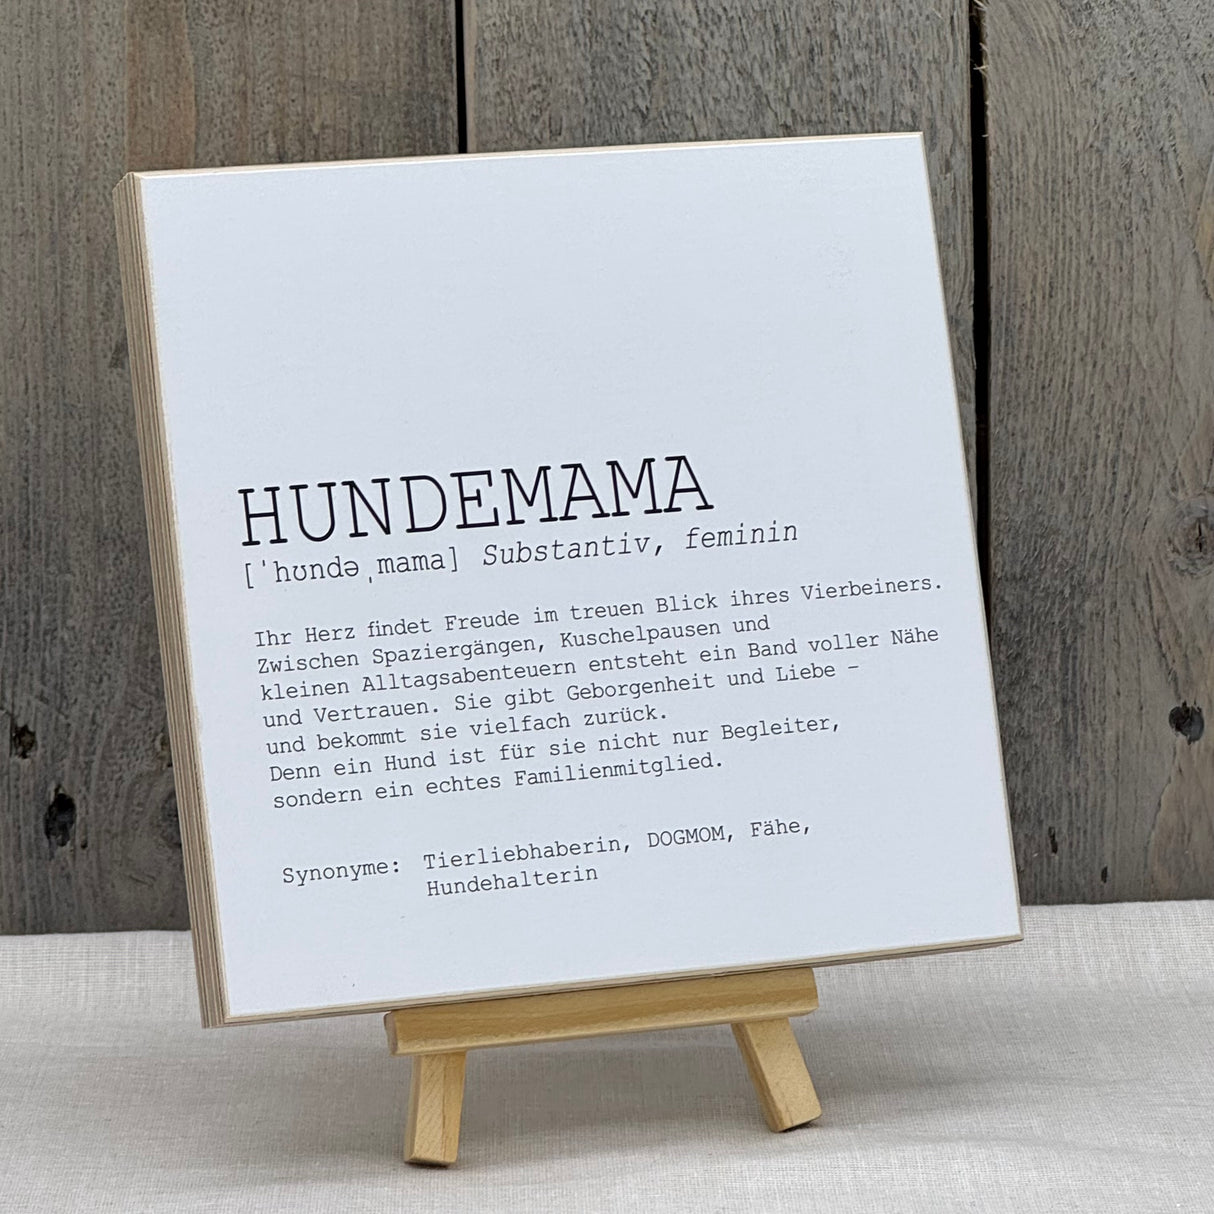 HUNDEMAMA
[ˈhʊndəˌmama] Substantiv, feminin
Ihr Herz findet Freude im treuen Blick ihres Vierbeiners.
Zwischen Spaziergängen, Kuschelpausen und
kleinen Alltagsabenteuern entsteht ein Band voller Nähe
und Vertrauen. Sie gibt Geborgenheit und Liebe –
und bekommt sie vielfach zurück.
Denn ein Hund ist für sie nicht nur Begleiter,
sondern ein echtes Familienmitglied.
Synonyme: Tierliebhaberin, DOGMOM, Fähe,
Hundehalterin